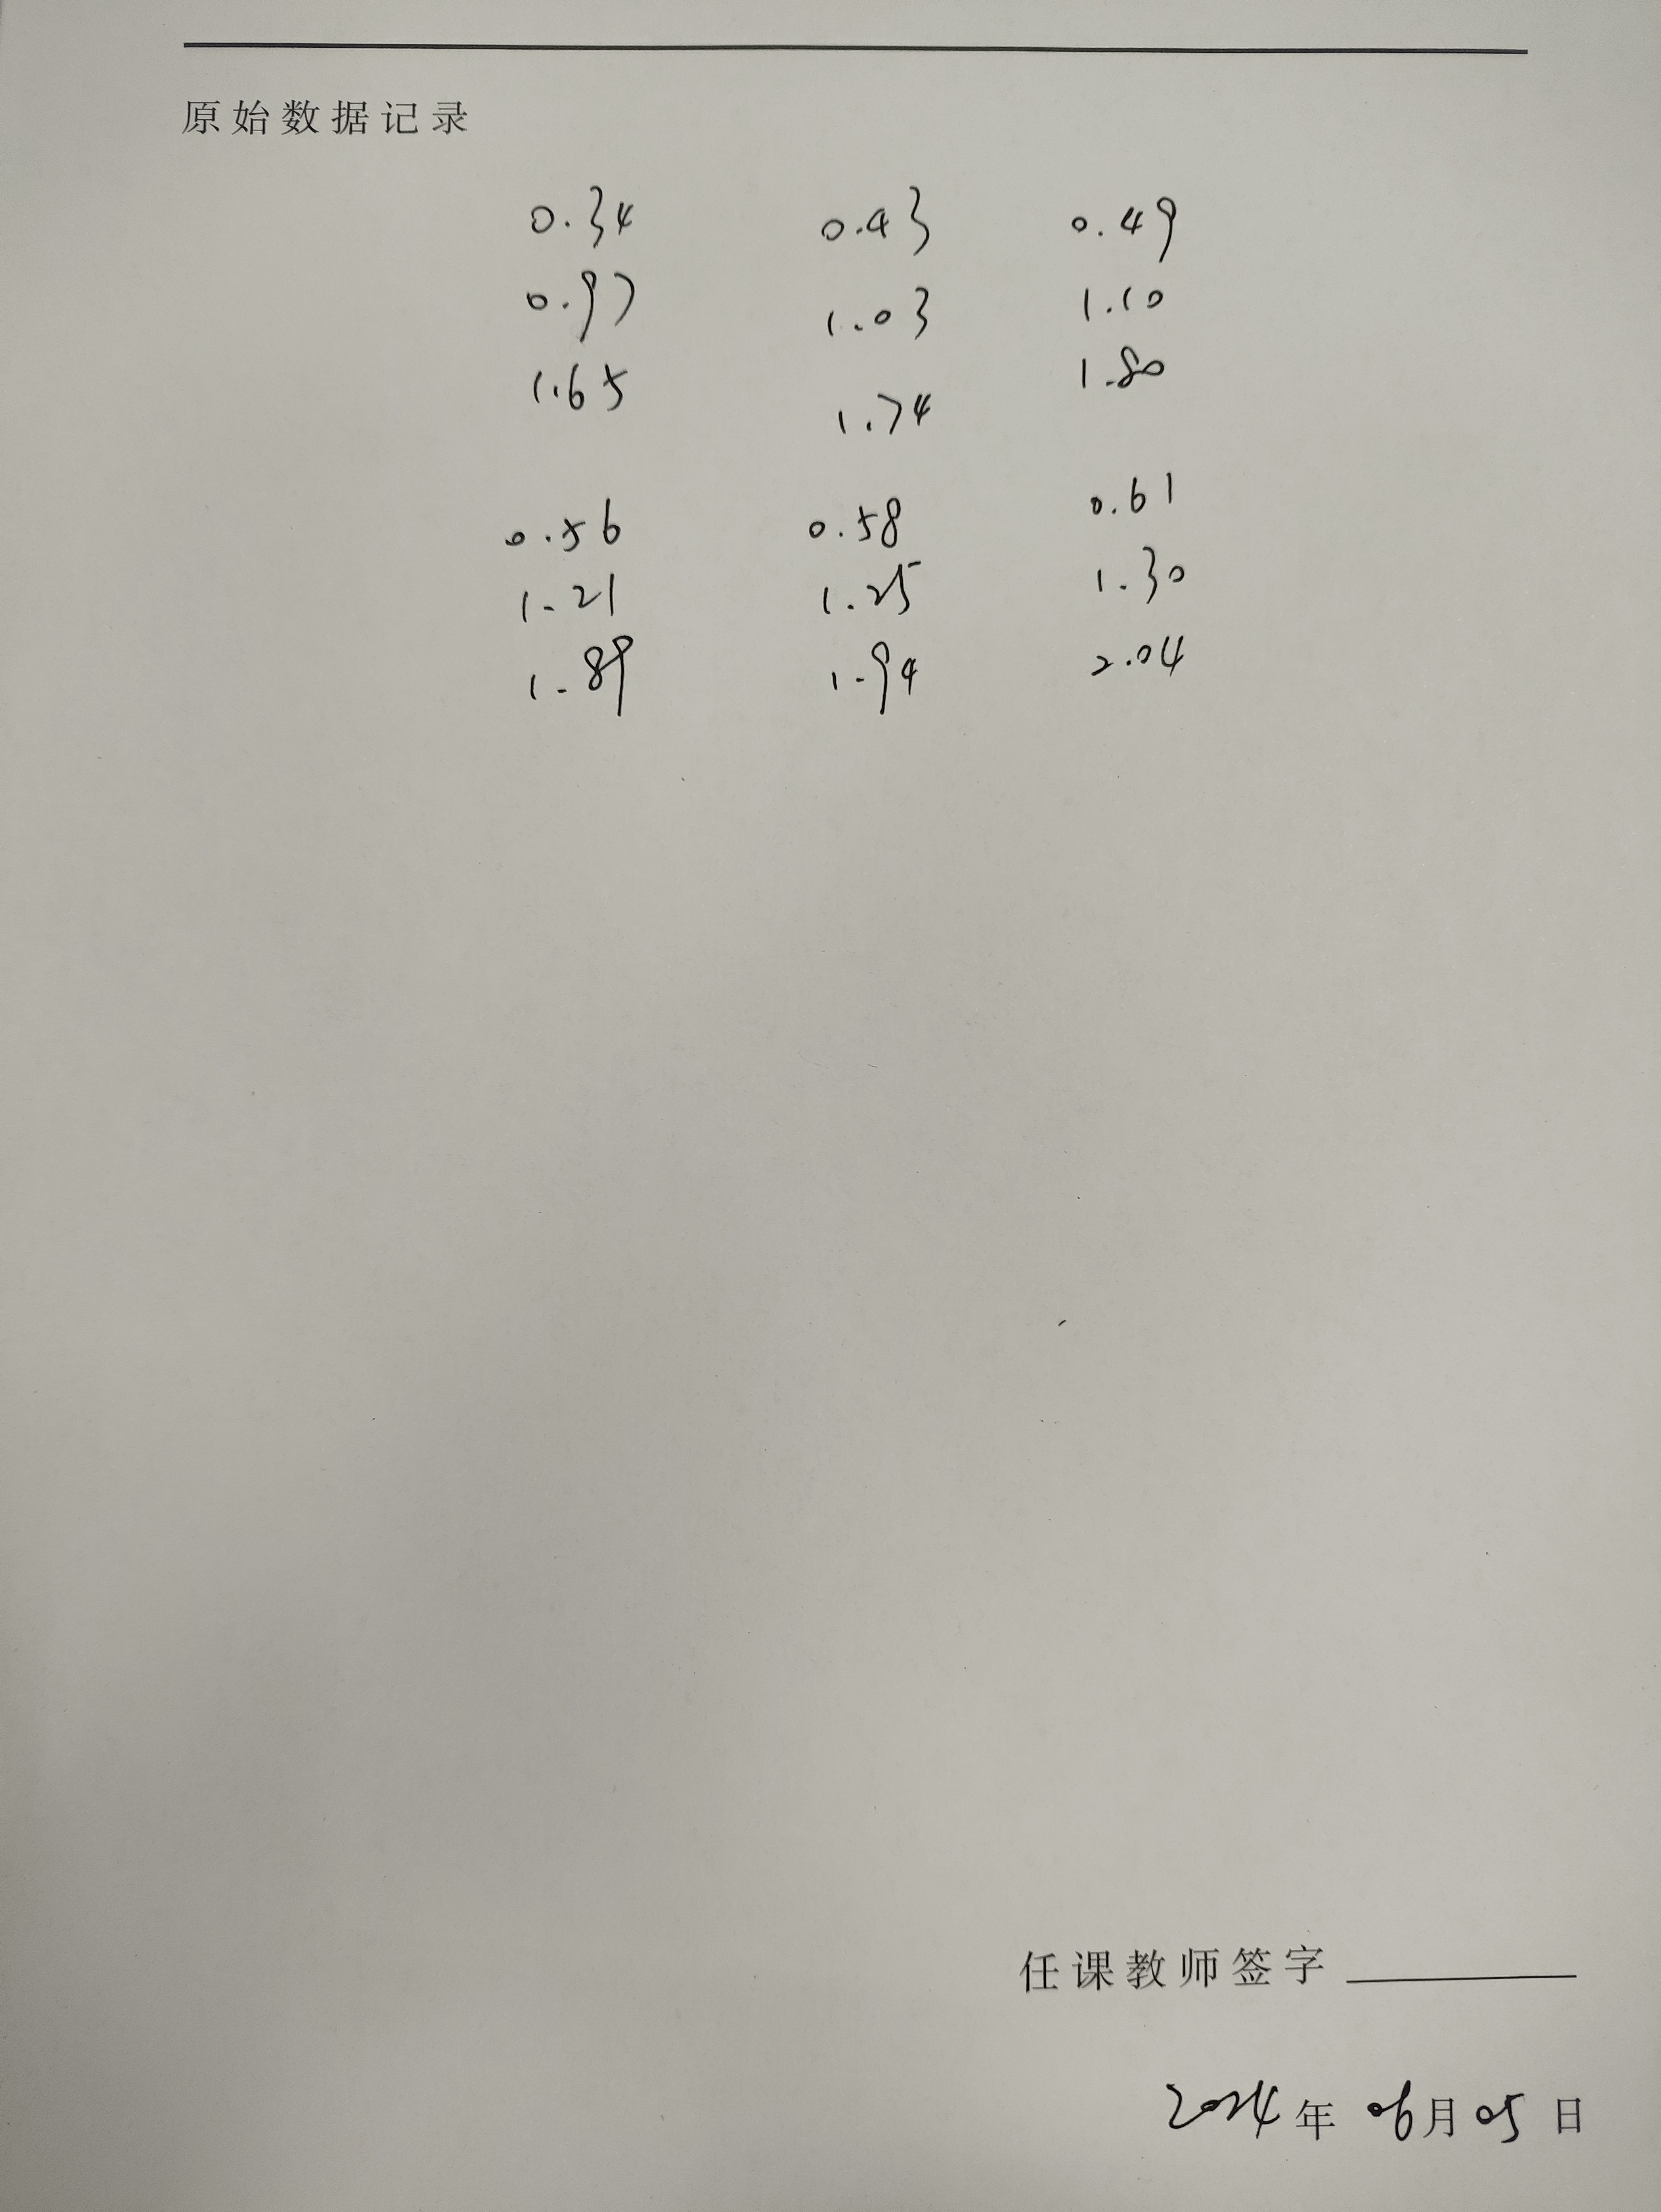 原始数据记录
0.34 0.43 0.49
0.97 1.03 1.10
1.65 1.74 1.80
0.56 0.58 0.61
1.21 1.25 1.30
1.89 1.94 2.04
任课教师签字
2024年 06月05日